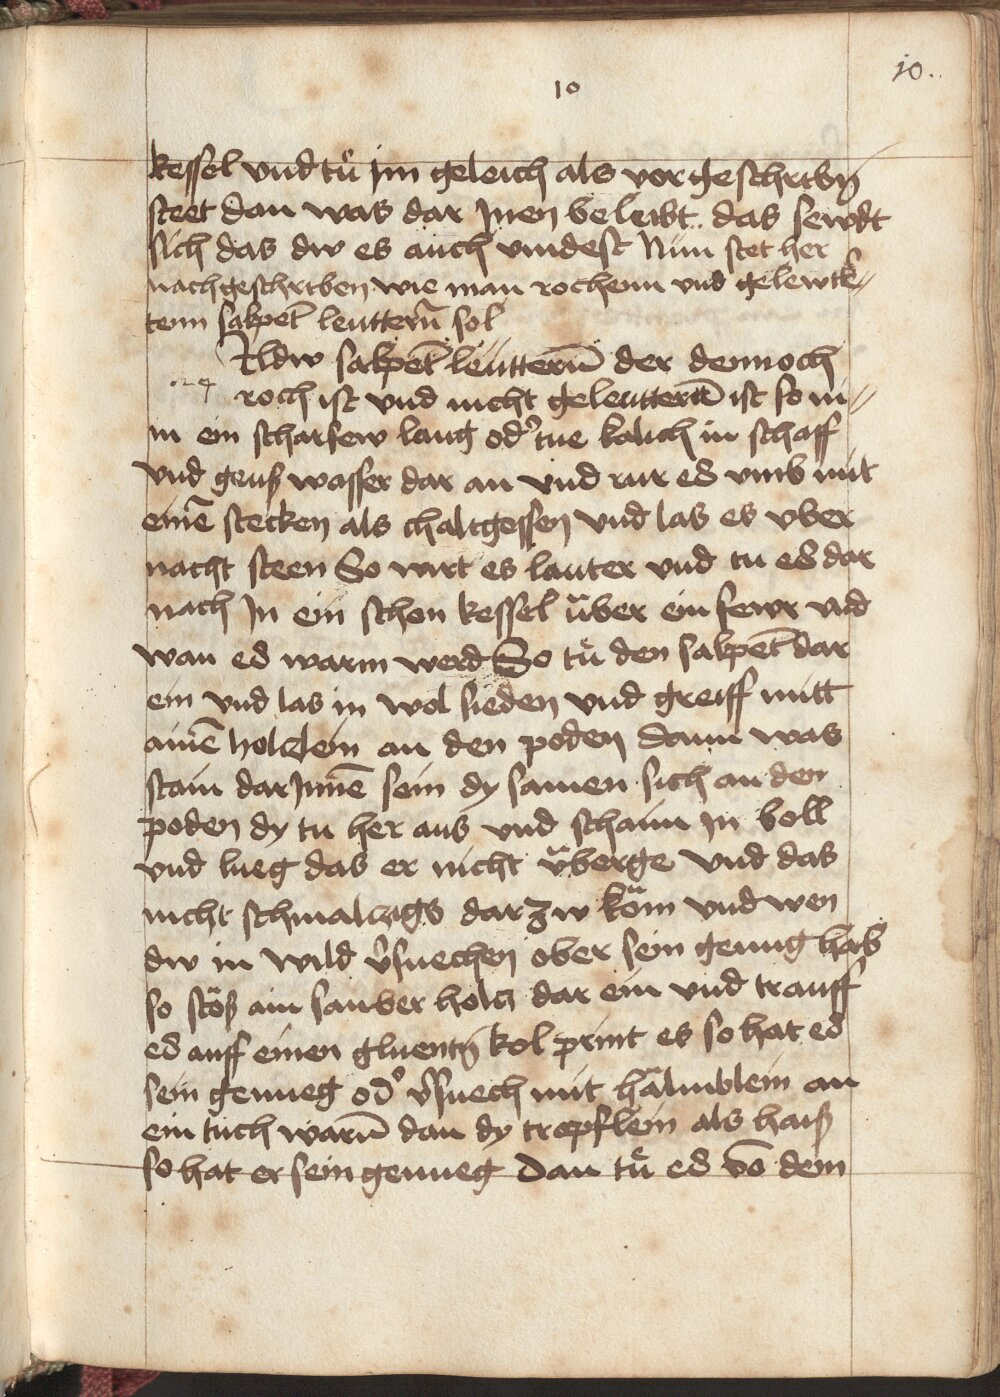 10
10.
kessel vnd tů jm geleich als vor geschribñ
steet dan was dar Jnen beleibt das sewdt
sich das dw es auch vindest Nun stet her
nachgeschriben wie man rochenn vnd gelewtē
tenn salpet̄ leutterñ sol
Wildw salpet̄ leutterñ der dennoch
roch ist vnd nicht geleuttertt ist so ni
m ein scharfew laug od' tue kalich in schaff
vnd geuß wasser dar an vnd rur es vmb mit
einē stecken als chaltgessen vnd las es vber
nacht steen So wirt es lauter vnd tu es dar
nach Jn ein schon kessel über ein fewr vnd
wan es warm werd So tů den salpet̄ dar
ein vnd las in wol sieden vnd greiff mitt
ainē holczlein an den poden dann was
stain dar Jnnē sein dy samen sich an den
poden dy tu her aus vnd schaim in woll
vnd lueg das er nicht v̈berge vnd das
nicht schmalczigs dar zw köm vnd wen
dw in wild v̄suechen ober sein genug hab
so stöß ain sauber holcz dar ein vnd trauff
es auff einen gluentñ kol print es so hat es
sein genueg od' v̄suech mit halmblein an
ein tuch warñ dan dy tropflein als haiß
so hat er sein genueg Dan tů es vō dem